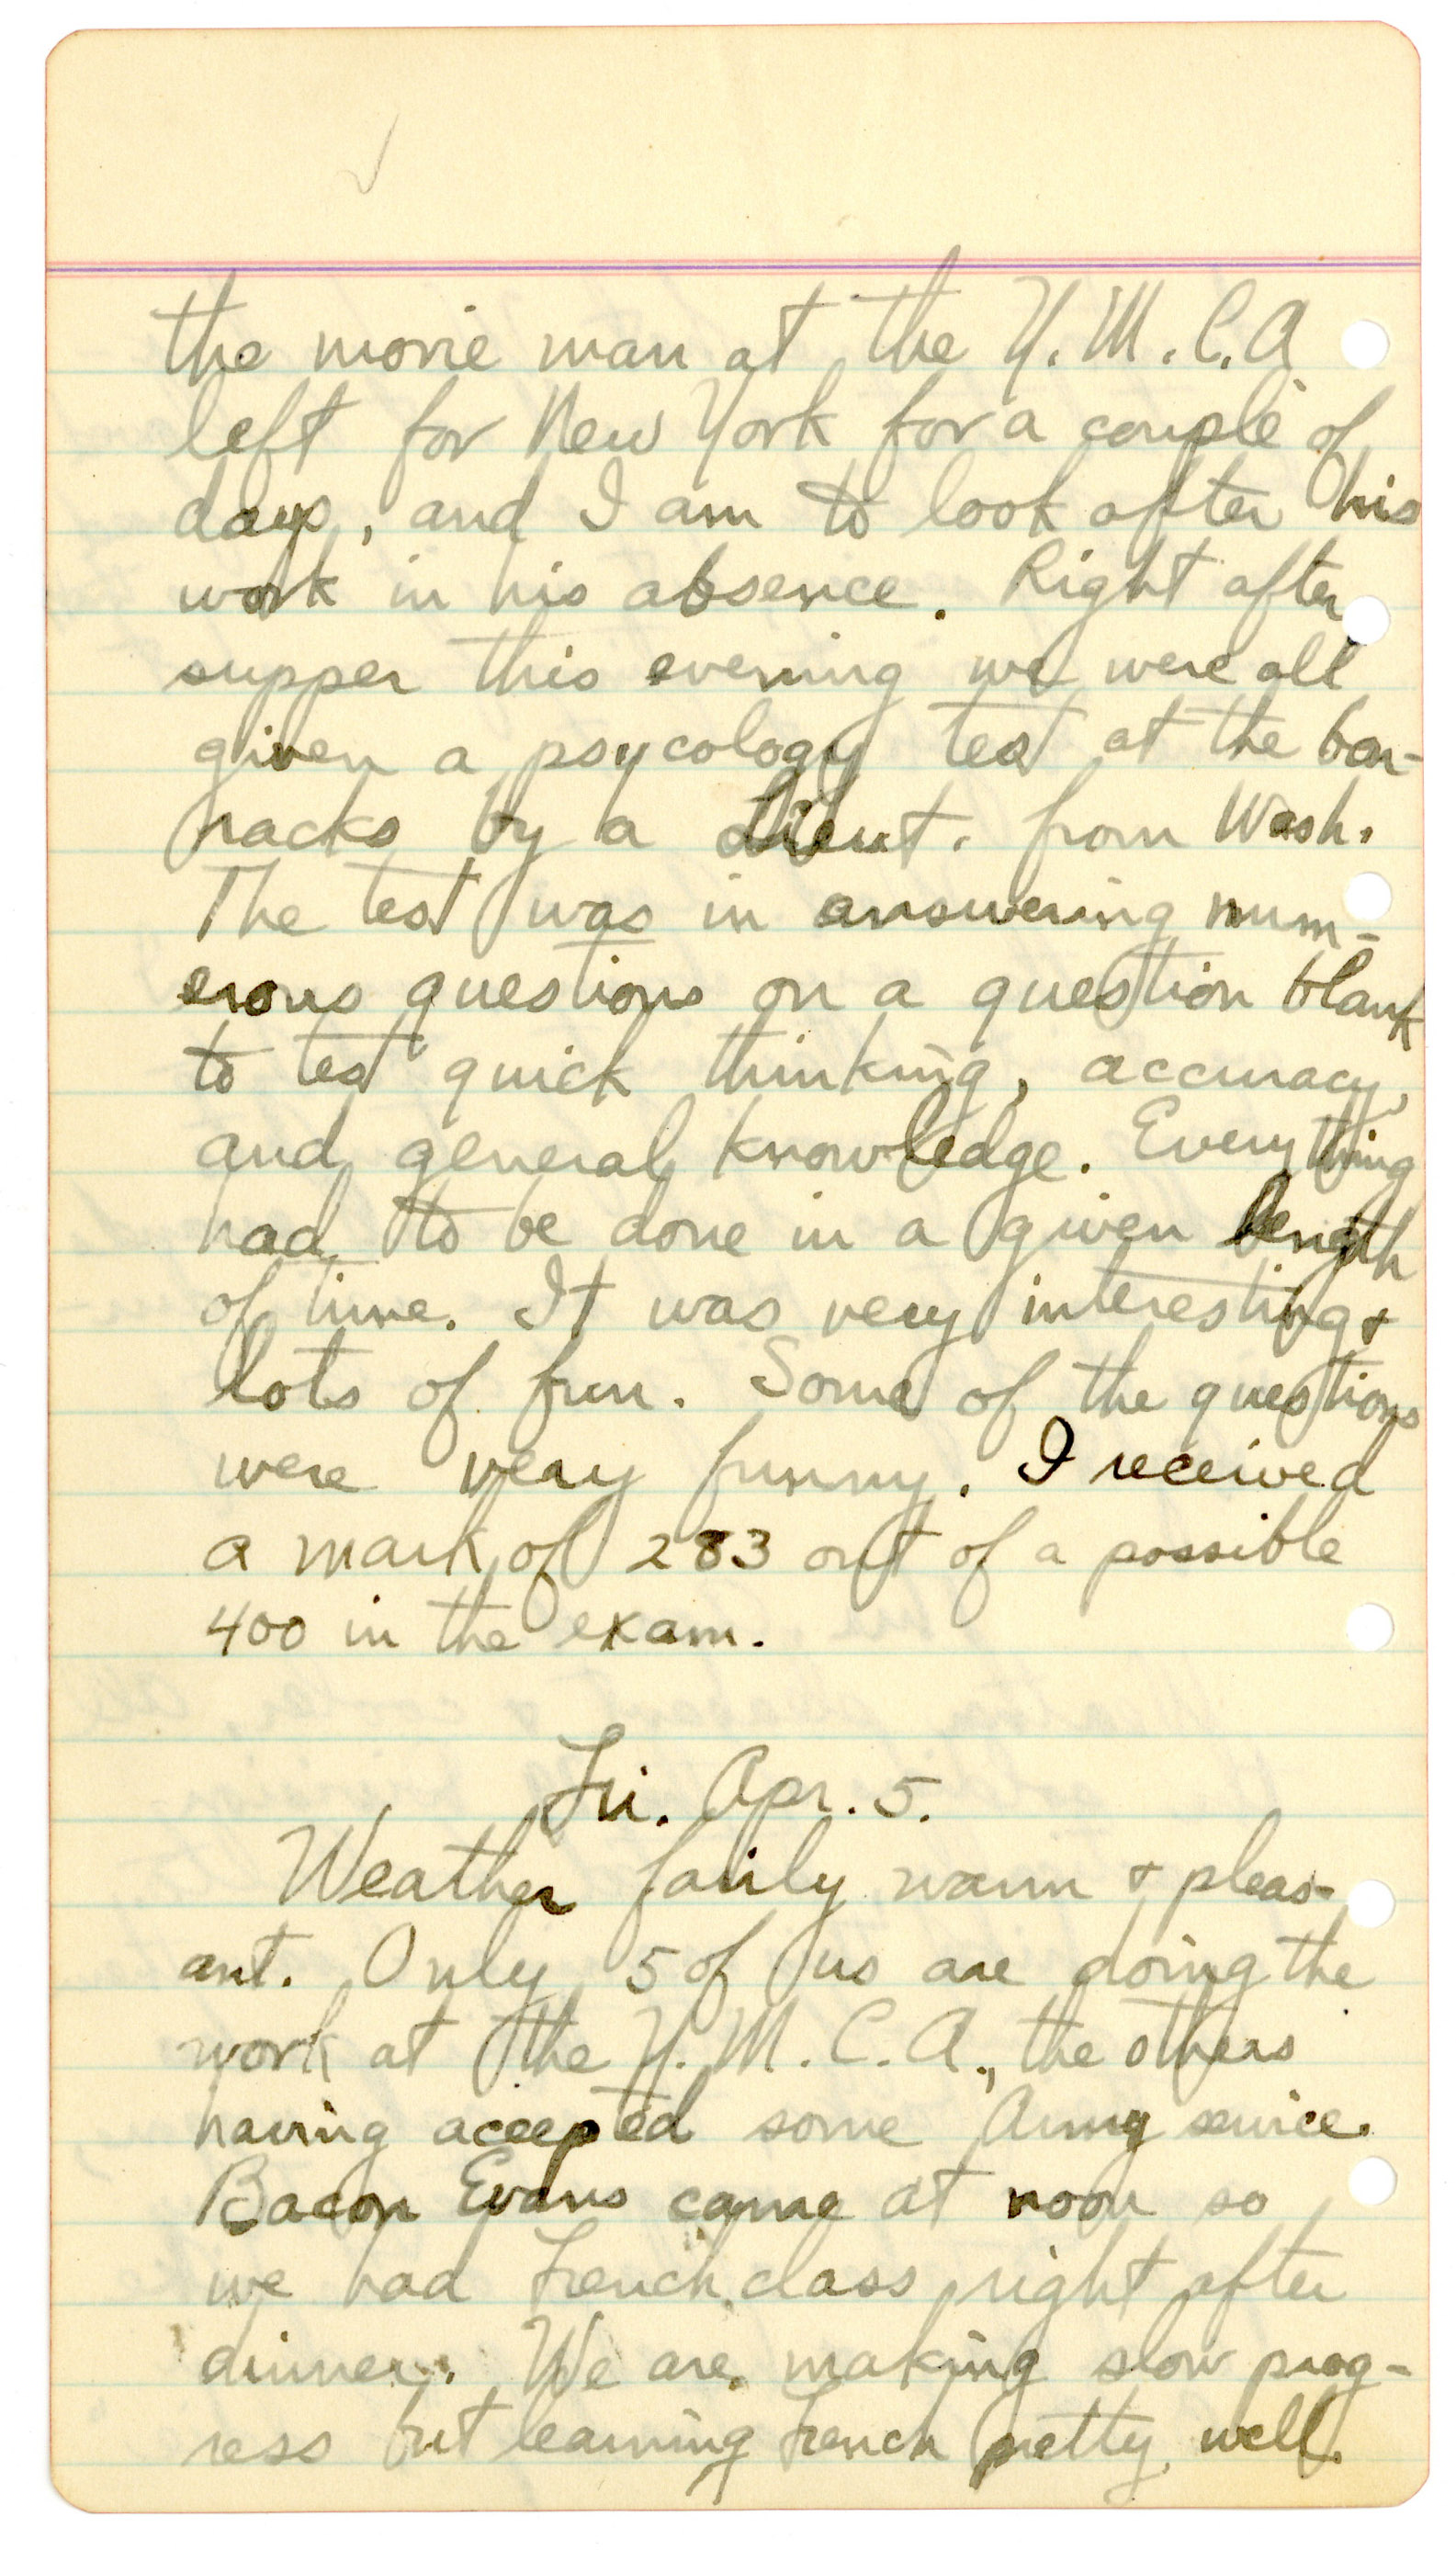 the movie man at the Y.M.C.A
left for New York for a couple of
days, and I am to look after his
work in his absence. Right after
supper this evening we were all
given a psycology test at the bar-
racks by a Lieut. from Wash.
The test was in answering num-
erous questions on a question blank
to test quick thinking, accuracy,
and general knowledge. Everything
had to be done in a given length
of time. It was very interesting &
lots of fun. Some of the questions
were very funny. I received
a mark of 283 out of a possible
400 in the exam.
Fri. Apr. 5.
Weather fairly warm & pleas-
ant. Only 5 of us are doing the
work at the Y.M.C.A., the others
having accepted some Army service.
Bacon Evans came at noon so
we had French class right after
dinner. We are making slow prog-
ress but learning French pretty well.